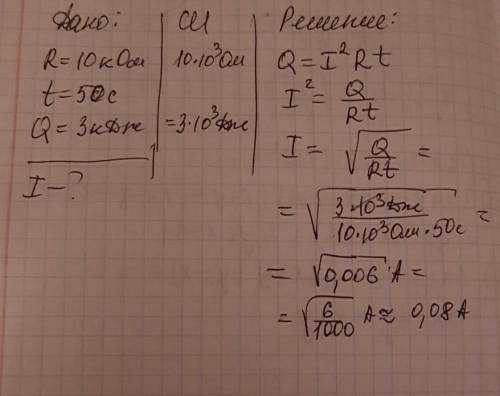 Дано:
R = 10 кОм
t = 50с
Q = 3 кДж
I – ?
СИ
10·10³Ом
=3·10³Дж
Решение:
Q = I²Rt
I² = Q/Rt
I = √(Q/Rt) =
= √(3·10³Дж/10·10³Ом·50с) =
= √0,006 А =
= √(6/1000) А ≈ 0,08А